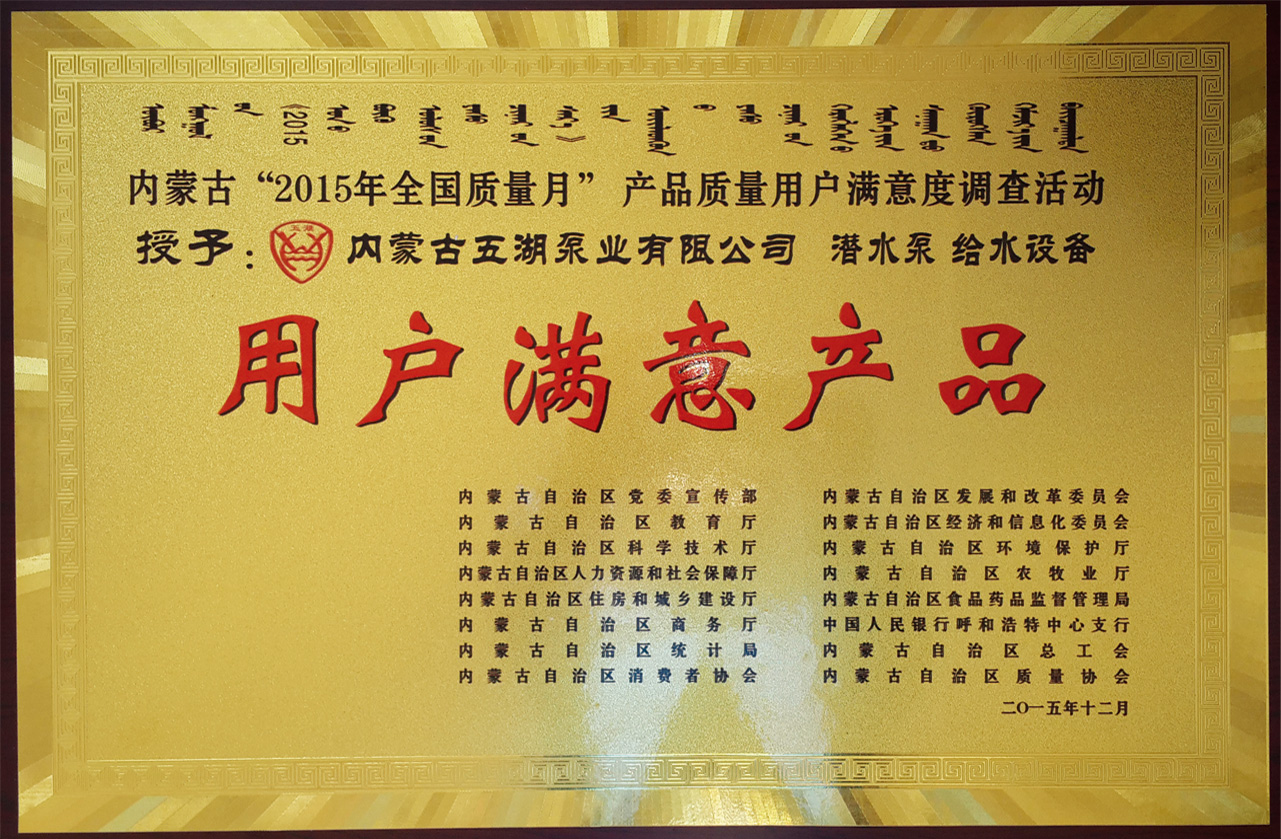 内蒙古“2015年全国质量月” 产品质量用户满意度调查活动
授予： 五湖 内蒙古五湖泵业有限公司 潜水泵 给水设备
用户满意产品
内蒙古自治区党委宣传部
内蒙古自治区教育厅
内蒙古自治区科学技术厅
内蒙古自治区人力资源和社会保障厅
内蒙古自治区住房和城乡建设厅
内蒙古自治区商务厅
内蒙古自治区统计局
内蒙古自治区消费者协会
内蒙古自治区发展和改革委员会
内蒙古自治区经济和信息化委员会
内蒙古自治区环境保护厅
内蒙古自治区农牧业厅
内蒙古自治区食品药品监督管理局
中国人民银行呼和浩特中心支行
内蒙古自治区总工会
内蒙古自治区质量协会
二〇一五年十二月